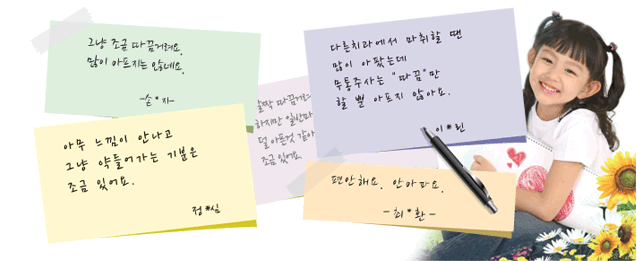 그냥 조금 따끔거려요.
많이 아프지는 않네요.
다른치과에서 마취할 땐
많이 아팠는데
무통주사는 "따끔"만
할 뿐 아프지 않아요.
이*린
살짝 따끔거려
하지만 일반마
덜 아픈것 같아
조금있어요.
아무 느낌이 안나고
그냥 약들어가는 기분은
조금 있어요.
정*심
편안해요. 안아파요.
-최*환-